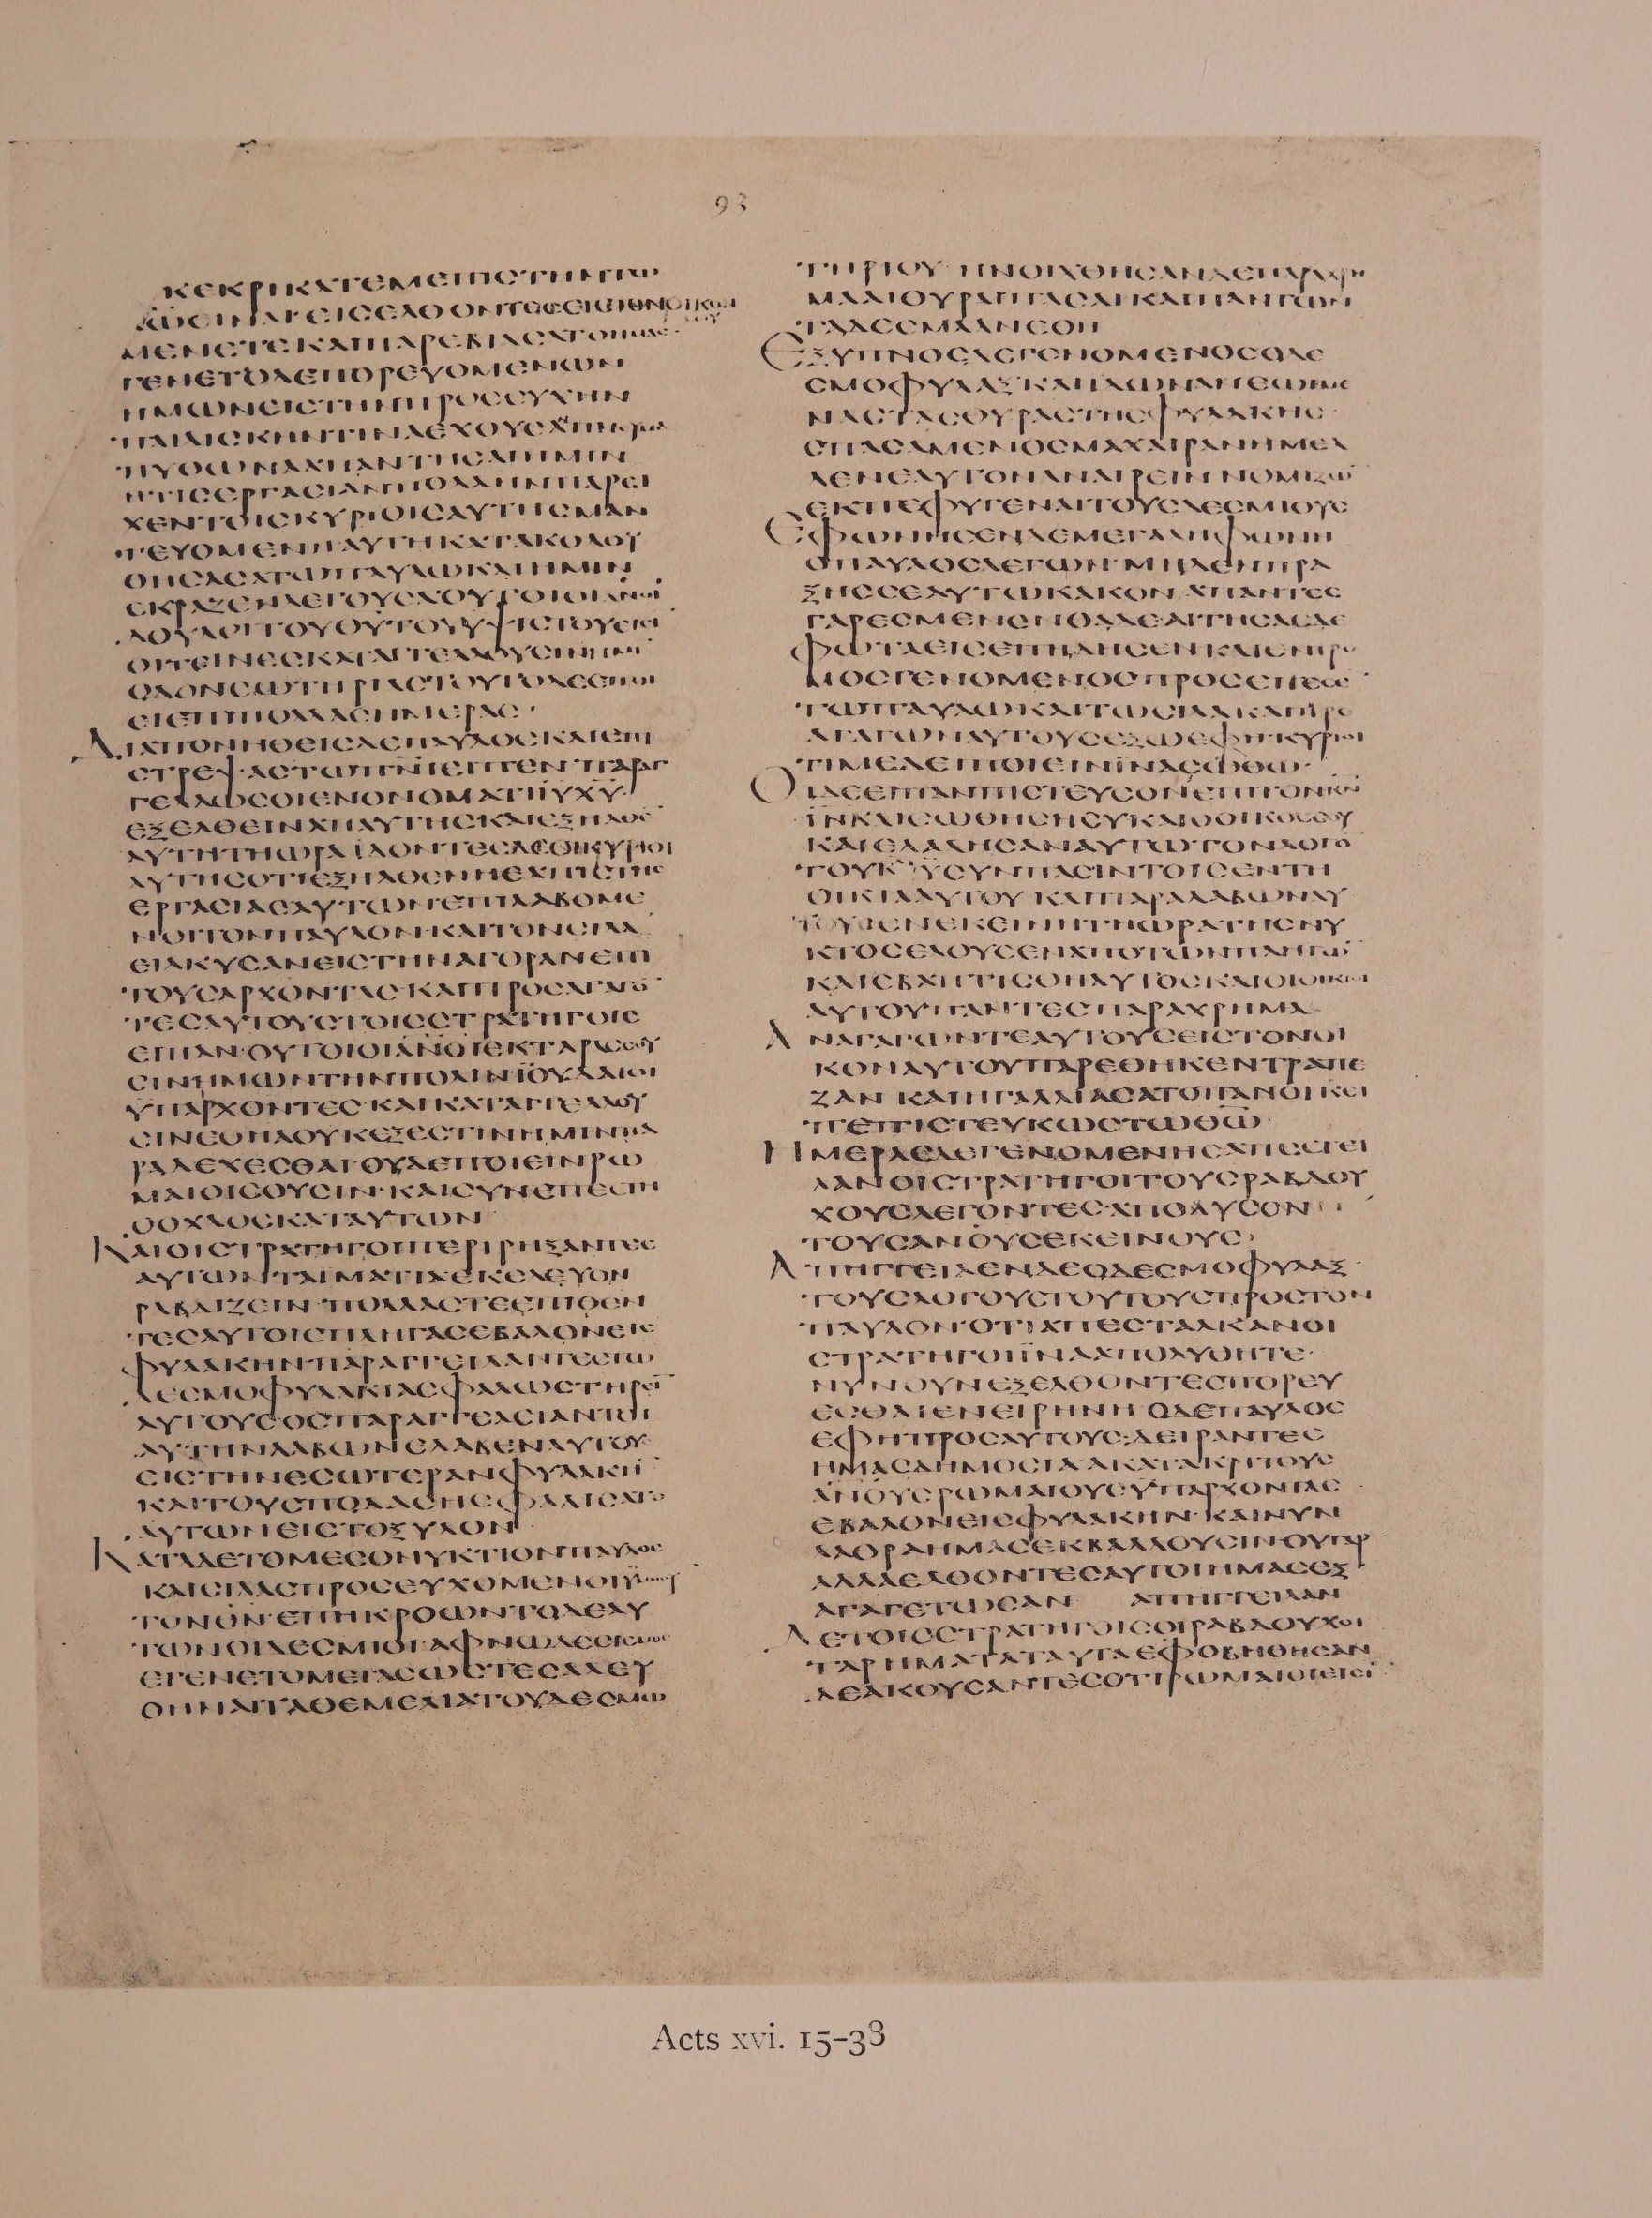 93
ΚΕΚΡΙΚΑΤΕΜΕΠΙϹΤΗΝΤΩ
ΜΕΝΕΤΕΚΑΙΠΑΡΕΒΙΑϹΑΤΟΗΜΑϹ·
ΓΕΝΕΤΟΔΕΠΟΡΕΥΟΜΕΝΩΝ
ΗΜΩΝΕΙϹΤΗΝΠΡΟϹΕΥΧΗΝ
ΠΥΘΩΝΑΑΠΑΝΤΗϹΑΙΗΜΙΝ
ΗΤΙϹΕΡΓΑϹΙΑΝΠΟΛΛΗΝΠΑΡΕΙ
ΧΕΝΤΟΙϹΚΥΡΙΟΙϹΑΥΤΗϹΜΑΝ
ΤΕΥΟΜΕΝΗΑΥΤΗΚΑΤΑΚΟΛΟΥ
ΘΗϹΑϹΑΤΩΠΑΥΛΩΚΑΙΗΜΙΝ
ΕΚΡΑΖΕΝΛΕΓΟΥϹΑΟΥΤΟΙΟΙΑΝΟΙ
ΔΟΥΛΟΙΤΟΥΘΥΤΟΥΥΨΙϹΤΟΥΕΙϹΙ
ΟΙΤΕΙΝΕϹΚΑΤΑΓΓΕΛΛΟΥϹΙΝΗΜΙΝ
ΟΔΟΝϹΩΤΗΡΙΑϹΤΟΥΤΟΔΕΕΠΟΙ
ΕΙΕΠΙΠΟΛΛΑϹΗΜΕΡΑϹ·
ΔΙΑΠΟΝΗΘΕΙϹΔΕΠΑΥΛΟϹΚΑΙΕΠΙ
ϹΤΡΕΨΑϹΤΩΠΝΙΕΙΠΕΝΠΑΡΑΓ
ΓΕΛΛΩϹΟΙΕΝΟΝΟΜΑΤΙΙΥΧΥ
ΕΞΕΛΘΕΙΝΑΠΑΥΤΗϹΚΑΙΕΞΗΛΘΕ
ΑΥΤΗΤΗΩΡΑΙΔΟΝΤΕϹΔΕΟΙΚΥΡΙΟΙ
ΑΥΤΗϹΟΤΙΕΞΗΛΘΕΝΗΕΛΠΙϹΤΗϹ
ΕΡΓΑϹΙΑϹΑΥΤΩΝΕΠΙΛΑΒΟΜΕ
ΝΟΙΤΟΝΠΑΥΛΟΝΚΑΙΤΟΝϹΙΛΑ
ΕΙΛΚΥϹΑΝΕΙϹΤΗΝΑΓΟΡΑΝΕΠΙ
ΤΟΥϹΑΡΧΟΝΤΑϹΚΑΙΠΡΟϹΑΓΑΓΟ
ΤΕϹΑΥΤΟΥϹΤΟΙϹϹΤΡΑΤΗΓΟΙϹ
ΕΙΠΑΝ·ΟΥΤΟΙΟΙΑΝΟΙΕΚΤΑΡΑϹϹΟΥ
ϹΙΝΗΜΩΝΤΗΝΠΟΛΙΝΙΟΥΔΑΙΟΙ
ΥΠΑΡΧΟΝΤΕϹΚΑΙΚΑΤΑΓΓΕΛΛΟΥ
ϹΙΝΕΘΗΑΟΥΚΕΞΕϹΤΙΝΗΜΙΝΠΑ
ΡΑΔΕΧΕϹΘΑΙΟΥΔΕΠΟΙΕΙΝΡΩ
ΜΑΙΟΙϹΟΥϹΙΝ·ΚΑΙϹΥΝΕΠΕϹΤΗ
ΟΟΧΛΟϹΚΑΤΑΥΤΩΝ
ΚΑΙΟΙϹΤΡΑΤΗΓΟΙΠΕΡΙΡΗΞΑΝΤΕϹ
ΑΥΤΩΝΤΑΙΜΑΤΙΑΕΚΕΛΕΥΟΝ
ΡΑΒΔΙΖΕΙΝ·ΠΟΛΛΑϹΤΕΕΠΙΘΕΝ
ΤΕϹΑΥΤΟΙϹΠΛΗΓΑϹΕΒΑΛΟΝΕΙϹ
ΦΥΛΑΚΗΝΠΑΡΑΓΓΕΙΛΑΝΤΕϹΤΩ
ΔΕϹΜΟΦΥΛΑΚΙΑϹΦΑΛΩϹΤΗΡΕΙ
ΑΥΤΟΥϹ·ΟϹΠΑΡΑΓΓΕΛΕΙΑΝΤΟΙ
ΑΥΤΗΝΛΑΒΩΝΕΛΑΒΕΝΑΥΤΟΥ
ΕΙϹΤΗΝΕϹΩΤΕΡΑΝΦΥΛΑΚΗ
ΚΑΙΤΟΥϹΠΟΔΑϹΗϹΦΑΛΙϹΑΤΟ
ΑΥΤΩΝΕΙϹΤΟΞΥΛΟΝ
ΚΑΤΑΔΕΤΟΜΕϹΟΝΥΚΤΙΟΝΠΑΥΛΟϹ
ΚΑΙϹΙΛΑϹΠΡΟϹΕΥΧΟΜΕΝΟΙΥΜΝΟΥ
ΤΟΝΘΝ·ΕΠΗΚΡΟΩΝΤΟΔΕΑΥ
ΤΩΝΟΙΔΕϹΜΙΟΙΑΦΝΩΔΕϹΕΙϹΜΟϹ
ΕΓΕΝΕΤΟΜΕΓΑϹΩϹΤΕϹΑΛΕΥ
ΘΗΝΑΙΤΑΘΕΜΕΛΙΑΤΟΥΔΕϹΜΩ
ΤΗΡΙΟΥ·ΗΝΟΙΧΘΗϹΑΝΔΕΠΑΡΑΧΡΗ
ΜΑΑΙΘΥΡΑΙΠΑϹΑΙΚΑΙΠΑΝΤΩΝ
ΤΑΔΕϹΜΑΑΝΕΘΗ
ΕΞΥΠΝΟϹΔΕΓΕΝΟΜΕΝΟϹΟΔΕ
ϹΜΟΦΥΛΑΞΚΑΙΙΔΩΝΑΝΕΩΓΜΕ
ΝΑϹΤΑϹΘΥΡΑϹΤΗϹΦΥΛΑΚΗϹ·
ϹΠΑϹΑΜΕΝΟϹΜΑΧΑΙΡΑΝΗΜΕΛ
ΛΕΝΕΑΥΤΟΝΑΝΑΙΡΕΙΝΝΟΜΙΖΩ
ΕΚΠΕΦΥΓΕΝΑΙΤΟΥϹΔΕϹΜΙΟΥϹ
ΕΦΩΝΗϹΕΝΔΕΜΕΓΑΛΗΦΩΝΗ
ΟΠΑΥΛΟϹΛΕΓΩΝ·ΜΗΔΕΝΠΡΑ
ΞΗϹϹΕΑΥΤΩΚΑΚΟΝΑΠΑΝΤΕϹ
ΓΑΡΕϹΜΕΝΕΝΘΑΔΕΑΙΤΗϹΑϹΔΕ
ΦΩΤΑΕΙϹΕΠΗΔΗϹΕΝΚΑΙΕΝΤΡΟ
ΜΟϹΓΕΝΟΜΕΝΟϹΠΡΟϹΕΠΕϹΕ
ΤΩΠΑΥΛΩΚΑΙΤΩϹΙΛΑΚΑΙΠΡΟ
ΑΓΑΓΩΝΑΥΤΟΥϹΕΞΩΕΦΗ·ΚΥΡΙΟΙ
ΤΙΜΕΔΕΙΠΟΙΕΙΝΙΝΑϹΩΘΩ·
ΟΙΔΕΕΙΠΑΝΠΙϹΤΕΥϹΟΝΕΠΙΤΟΝΚΝ
ΙΝΚΑΙϹΩΘΗϹΗϹΥΚΑΙΟΟΙΚΟϹϹΟΥ
ΚΑΙΕΛΑΛΗϹΑΝΑΥΤΩΤΟΝΛΟΓΟ
ΤΟΥΚΥϹΥΝΠΑϹΙΝΤΟΙϹΕΝΤΗ
ΟΙΚΙΑΑΥΤΟΥΚΑΙΠΑΡΑΛΑΒΩΝΑΥ
ΤΟΥϹΕΝΕΚΕΙΝΗΤΗΩΡΑΤΗϹΝΥ
ΚΤΟϹΕΛΟΥϹΕΝΑΠΟΤΩΝΠΛΗΓΩ
ΚΑΙΕΒΑΠΤΙϹΘΗΑΥΤΟϹΚΑΙΟΙΟΙΚΙΟΙ
ΑΥΤΟΥΠΑΝΤΕϹΠΑΡΑΧΡΗΜΑ
ΑΝΑΓΑΓΩΝΤΕΑΥΤΟΥϹΕΙϹΤΟΝΟΙ
ΚΟΝΑΥΤΟΥΠΑΡΕΘΗΚΕΝΤΡΑΠΕ
ΖΑΝΚΑΙΗΓΑΛΛΙΑϹΑΤΟΠΑΝΟΙΚΕΙ
ΠΕΠΙϹΤΕΥΚΩϹΤΩΘΩ·
ΗΜΕΡΑϹΔΕΓΕΝΟΜΕΝΗϹΑΠΕϹΤΕΙ
ΛΑΝΟΙϹΤΡΑΤΗΓΟΙΤΟΥϹΡΑΒΔΟΥ
ΧΟΥϹΛΕΓΟΝΤΕϹΑΠΟΛΥϹΟΝ
ΤΟΥϹΑΝΟΥϹΕΚΕΙΝΟΥϹ
ΑΠΗΓΓΕΙΛΕΝΔΕΟΔΕϹΜΟΦΥΛΑΞ
ΤΟΥϹΛΟΓΟΥϹΤΟΥΤΟΥϹΠΡΟϹΤΟΝ
ΠΑΥΛΟΝ·ΟΤΙΑΠΕϹΤΑΛΚΑΝΟΙ
ϹΤΡΑΤΗΓΟΙΙΝΑΑΠΟΛΥΘΗΤΕ·
ΝΥΝΟΥΝΕΞΕΛΘΟΝΤΕϹΠΟΡΕΥ
ΕϹΘΑΙΕΝΕΙΡΗΝΗΟΔΕΠΑΥΛΟϹ
ΕΦΗΠΡΟϹΑΥΤΟΥϹ·ΔΕΙΡΑΝΤΕϹ
ΗΜΑϹΔΗΜΟϹΙΑΑΚΑΤΑΚΡΙΤΟΥϹ
ΑΝΟΥϹΡΩΜΑΙΟΥϹΥΠΑΡΧΟΝΤΑϹ
ΕΒΑΛΟΝΕΙϹΦΥΛΑΚΗΝ·ΚΑΙΝΥΝ
ΛΑΘΡΑΗΜΑϹΕΚΒΑΛΛΟΥϹΙΝΟΥΓΑΡ
ΑΛΛΑΕΛΘΟΝΤΕϹΑΥΤΟΙΗΜΑϹΕΞ
ΑΓΑΓΕΤΩϹΑΝ ΑΠΗΓΓΕΙΛΑΝ
ΔΕΤΟΙϹϹΤΡΑΤΗΓΟΙϹΟΙΡΑΒΔΟΥΧΟΙ
ΤΑΡΗΜΑΤΑΤΑΥΤΑΕΦΟΒΗΘΗϹΑΝ
ΔΕΑΚΟΥϹΑΝΤΕϹΟΤΙΡΩΜΑΙΟΙΕΙϹΙ
Acts xvi. 15-38